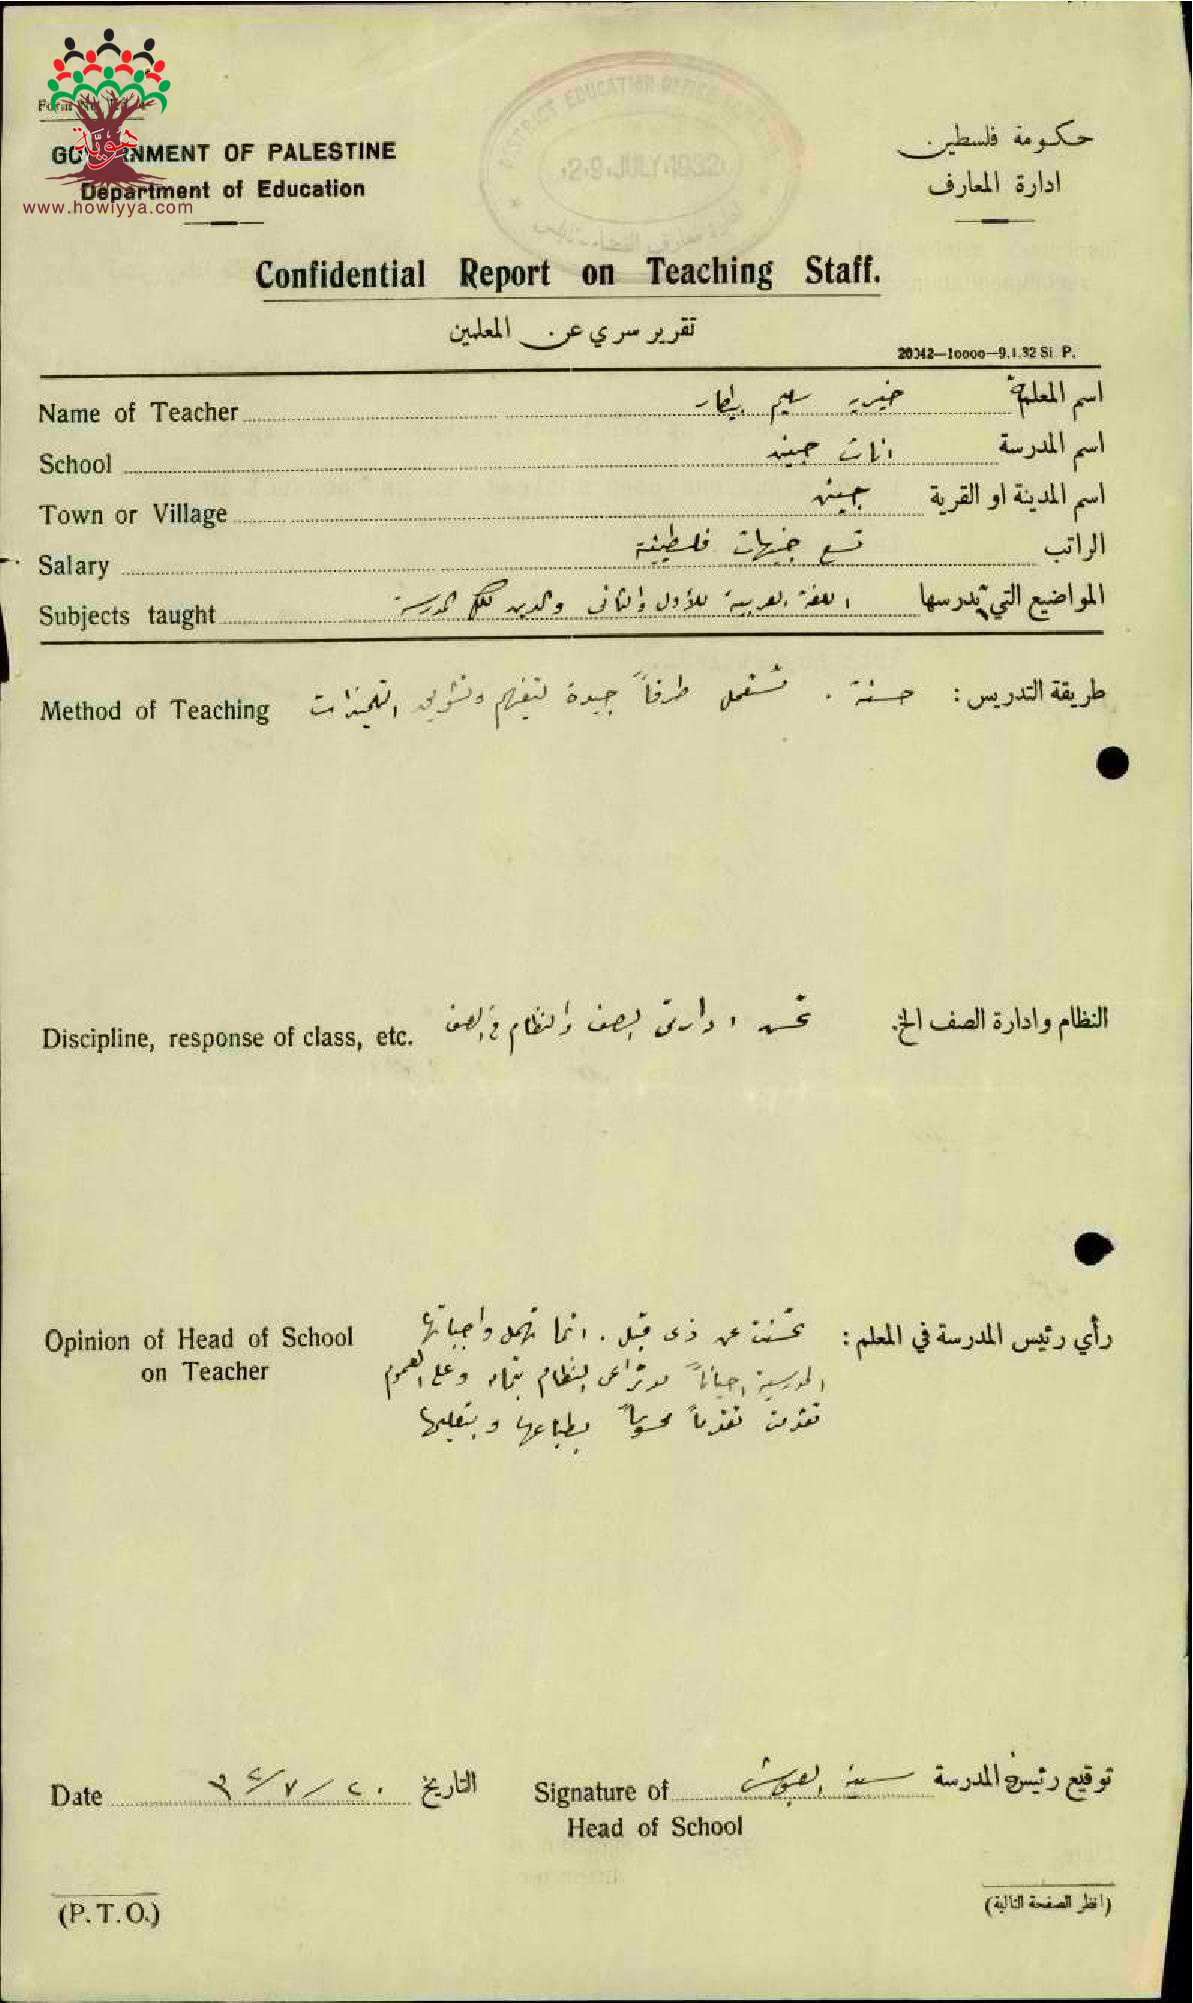 Form No.
هوية
www.howiyya.com
GOVERNMENT OF PALESTINE
Department of Education
DISTRICT EDUCATION OFFICE
29 JULY 1932
حكومة فلسطين
ادارة المعارف
Confidential Report on Teaching Staff.
تقرير سري عن المعلمين
20042—10000—9.1.32 Si P.
Name of Teacher خيريه سليم بيطار اسم المعلمة
School اناث جنين اسم المدرسة
Town or Village جنين اسم المدينة او القرية
Salary تسع جنيهات فلسطينية الراتب
Subjects taught اللغة العربية للأول والثاني والدين لكل المدرسة المواضيع التي تدرسها
Method of Teaching حسنة . تستعمل طرقاً جيدة لتفهم وتشويق التلميذات طريقة التدريس :
Discipline, response of class, etc. تحسن ادارة الصف والنظام في الصف النظام وادارة الصف الخ.
Opinion of Head of School تحسنت عن ذي قبل . انما تهمل واجباتها رأي رئيس المدرسة في المعلم :
on Teacher المدرسية احياناً ولا تراعي النظام تماماً وعلى العموم
تقدمت تقدماً محسوساً بطباعها وبتعليمها
Date ٢٠/٧/٣٢ التاريخ Signature of توقيع رئيسة المدرسة
Head of School
(P.T.O.) (انظر الصفحة التالية)